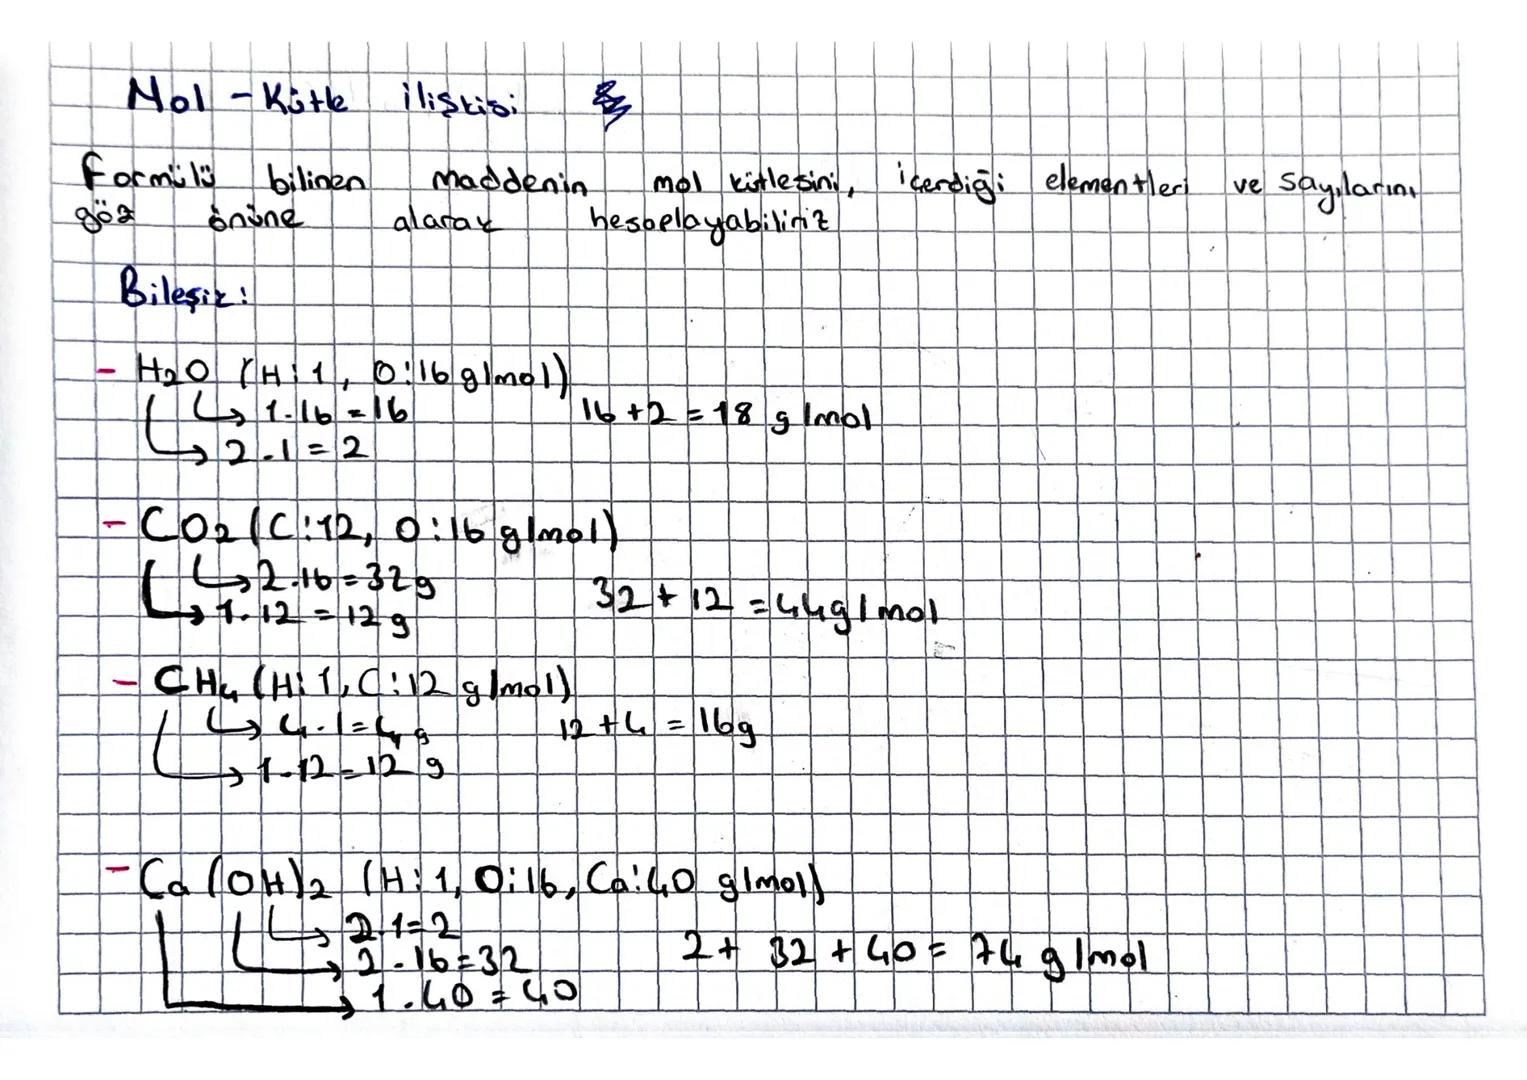 Mol - Kütle ilişkisi
Formülü bilinen maddenin mol kütlesini, içerdiği elementleri ve sayılarını
göz önüne alarak hesaplayabiliriz
Bileşik:
- H2O (H:1, O:16 g/mol)
→ 1.16 = 16 16 + 2 = 18 g/mol
→ 2.1 = 2
- CO2 (C:12, O:16 g/mol)
→ 2.16 = 32g 32 + 12 = 44g/mol
→ 1.12 = 12 g
- CH4 (H:1, C:12 g/mol)
→ 4.1 = 4 g 12 + 4 = 16g
→ 1.12 = 12 g
- Ca (OH)2 (H:1, O:16, Ca:40 g/mol)
→ 2.1 = 2
→ 2.16 = 32 2 + 32 + 40 = 74 g/mol
→ 1.40 = 40